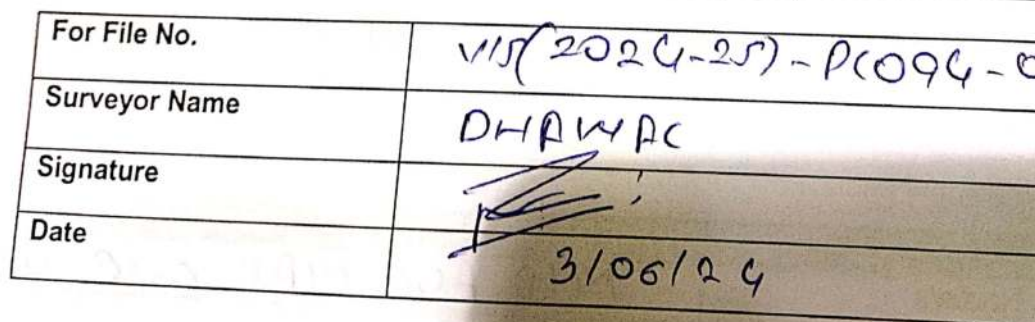 For File No. VIS(2024-25)-PC094-0
Surveyor Name DHAWAL
Signature
Date 3/06/24